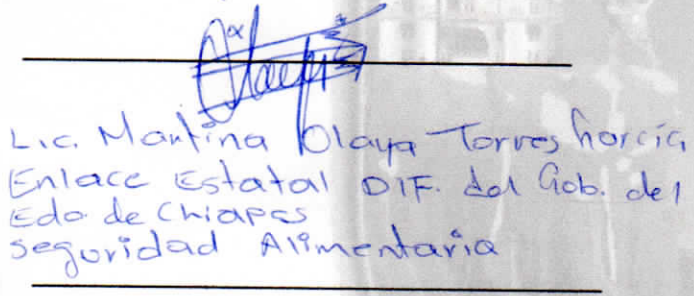 Lic. Martina Olaya Torres García
Enlace Estatal DIF. del Gob. del
Edo de Chiapas
seguridad Alimentaria